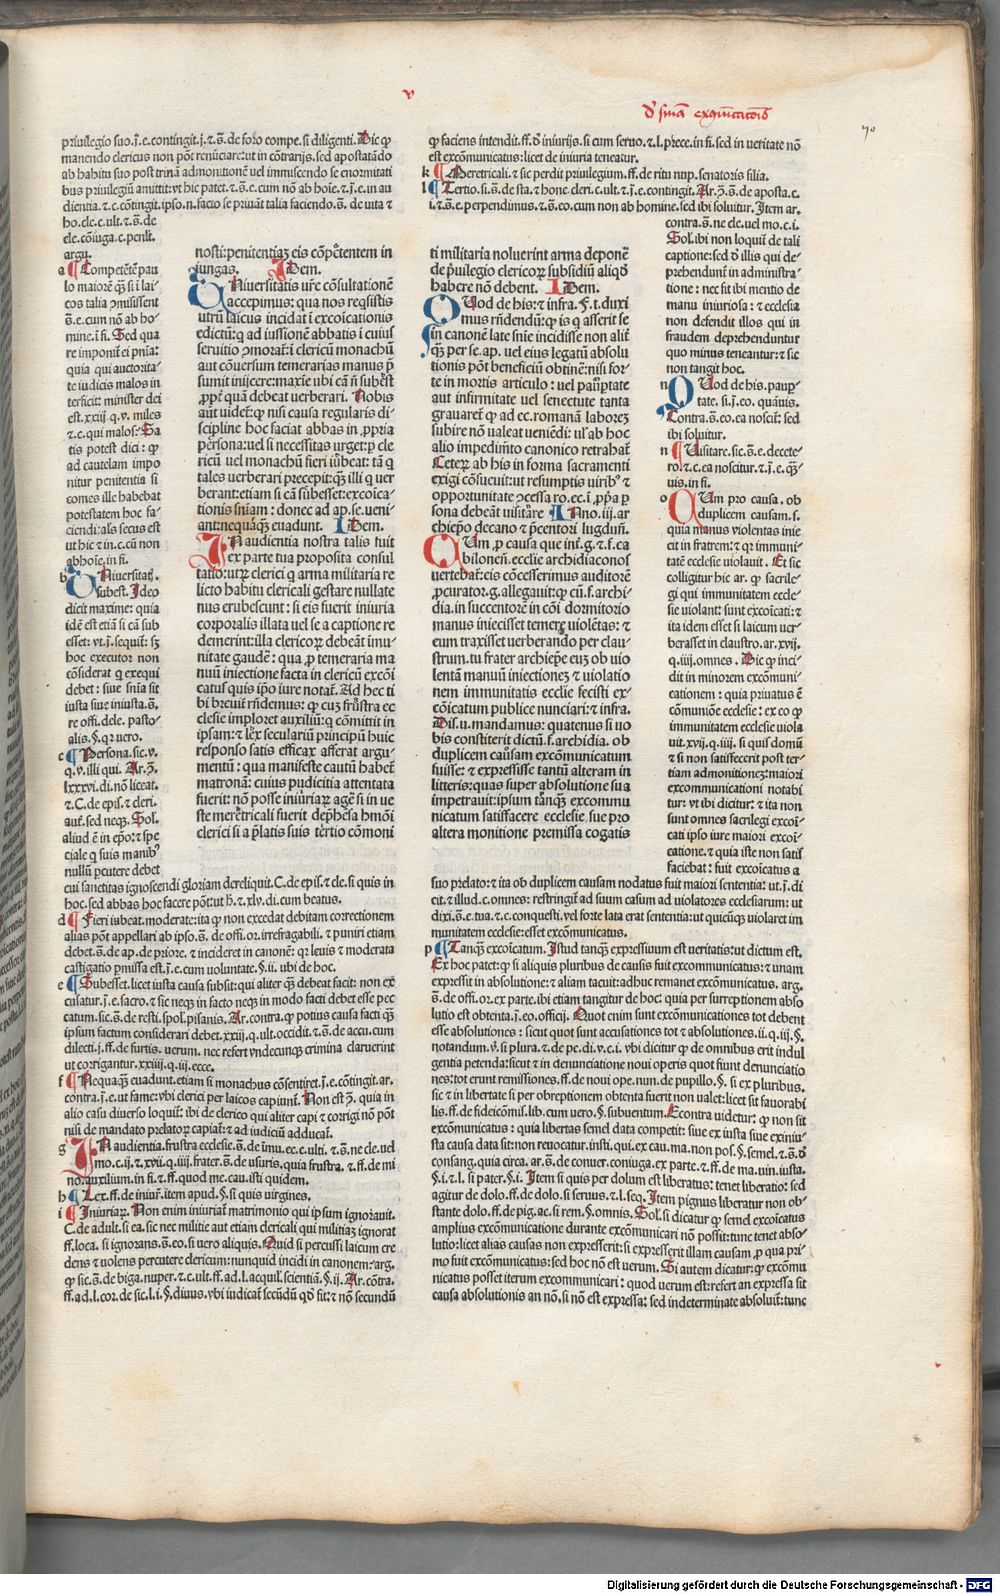 v
70
priuilegio suo.j.e.contingit.j.⁊.s̄.de foro compe.si diligenti. Dic ꝙ
manendo clericus non pōt renūciare:ut in cōtrarijs.sed apostatādo
ab habitu suo post trinā admonitionē uel immiscendo se enormitati
bus priuilegiū amittit:vt hic patet.⁊.s̄.e.cum nō ab hoīe.⁊.j.e.in au
dientia.⁊.c.cōtingit.ipso.n.facio se priuāt talia faciendo.s̄.de uita ⁊
ho.cle.c.ult.⁊.s̄.de
cle.cōiuga.c.penlt.
argu.
a Competētē pau
lo maiorē q̄ȝ si i lai-
cos talia ↄmisissent
s̄.e.cum nō ab ho-
mine.i fi. Sed qua
re imponit ei pnīa:
quia qui auctorita-
te iudicis malos in
terficit: minister dei
est.xxiij.q.v. miles
⁊.c.qui malos: Sa
tis potest dici: ꝙ
ad cautelam impo
nitur penitentia si
comes ille habebat
potestatem hoc fa-
ciendi:als secus est
ut hic ⁊ in.c.cū non
abhoīe.in fi.
b Uniuersitatꝭ.
subest. Ideo
dicit maxime: quia
idē est etiā si cā sub
esset: vt.j.sequit᷑: sȝ
hoc executor non
cōsiderat q̄ exequi
debet: siue snīa sit
iusta siue iniusta.s̄.
re offi.dele. pasto-
alis.§.qꝛ uero.
c Persona.sic.v.
q.v.illi qui. Ar.ↄ̄.
lxxxvi.di.nō liceat.
⁊.C.de epis.⁊ cleri.
aut̄.sed neqꝫ. Sol.
aliud ē in epō:⁊ spe
ciale q̄ suis manibꝰ
nullū pcutere debet
cui sanctitas ignoscendi gloriam dereliquit.C.de epis.⁊ cle.si quis in
hoc.sed abbas hoc facere pōt:ut h̄.⁊.xlv.di.cum beatus.
d Fieri iubeat.moderate:ita ꝙ non excedat debitam correctionem
alias pōt appellari ab ipso.s̄. de offi.or.irrefragabili. ⁊ puniri etiam
debet.s̄.de ap.de priore. ⁊ incideret in canonē: qꝛ leuis ⁊ moderata
castigatio pmissa est.j.e.cum uoluntate.§.ii. ubi de hoc.
e Subesset.licet iusta causa subsit:qui aliter q̄ȝ debeat facit: non ex
cusatur.j.e.sacro.⁊ sic neqꝫ in facto neqꝫ in modo facti debet esse pec
catum.sic.s̄.de resti.spol.pisanis. Ar.contra.ꝙ potius causa facti q̄ȝ
ipsum factum considerari debet.xxiij.q.ult.occidit.⁊.s̄.de accu.cum
dilecti.j.ff.de furtis. verum. nec refert vndecunqꝫ crimina claruerint
ut corrigantur.xxiiij.q.iij.ecce.
f Nequaq̄ȝ euadunt.etiam si monachus cōsentiret.j.e.cōtingit.ar.
contra.j.e.ut fame:vbi clerici per laicos capiunt᷑. Non est ↄ̄. quia in
alio casu diuerso loquit᷑: ibi de clerico qui aliter capi ⁊ corrigi nō pōt
nisi de mandato prelatoꝝ capiat᷑:⁊ ad iudiciū adducat᷑.
g In audientia.frustra ecclesie.s̄.de īmu.ec.c.ulti.⁊.s̄.ne cle.uel
mo.c.ij.⁊.xvii.q.iiij.frater.s̄.de usuris.quia frustra.⁊.ff.de mi
no.auxilium.in fi.⁊.ff.quod me.cau.isti quidem.
h Lex.ff.de iniur̄.item apud.§.si quis virgines.
i Iniuriaꝝ. Non enim iniuriat᷑ matrimonio qui ipsum ignorauit.
C.de adult.si ea.sic nec militie aut etiam clericali qui militiaȝ ignorat
ff.loca.si ignorans.s̄.eo.si uero aliquis. Quid si percussi laicum cre
dens ⁊ uolens percutere clericum:nunquid incidi in canonem:arg.
ꝙ sic.s̄.de biga.nuper.⁊.c.ult.ff.ad.l.acquil.scientiā.§.ij. Ar.cōtra.
ff.ad.l.cor.de sic.l.i.§.diuus.vbi iudicat᷑ secūdū qd̄ fit:⁊ nō secundū
nosti:penitentiaȝ eis cōpētentem in
iungas. Idem.
Uniuersitatis ur̄e cōsultationē
accepimus: qua nos reqsistis
utrū laicus incidat i excōicationis
edictū:q̄ ad iussionē abbatis i cuius
seruitio ↄmorat᷑:i clericū monachū
aut cōuersum temerarias manus p̄
sumit inijcere:maxie ubi cā n̄ subest
ꝓpt̄ quā debeat uerberari. Nobis
aut uidet᷑:ꝙ nisi causa regularis di-
scipline hoc faciat abbas in ꝓpria
persona:uel si necessitas urget:ꝑ cle
ricū uel monachū fieri iubeat: tā q̄
tales uerberari precepit:q̄ȝ illi q̄ uer
berant:etiam si cā subesset:excoīca-
tionis sniam: donec ad ap.se.ueni-
ant:nequaq̄ȝ euadunt. Idem.
In audientia nostra talis fuit
ex parte tua proposita consul
tatio:utꝝ clerici q̄ arma militaria re
licto habitu clericali gestare nullate
nus erubescunt: si eis fuerit iniuria
corporalis illata uel se a captione re
demerint:illa clericoꝝ debeāt īmu-
nitate gaudē: qua ꝓ temeraria ma
nuū iniectione facta in clericū excōi
catus quis ipo iure notat᷑. Ad hec ti
bi breuit̄ rn̄demus: ꝙ cuȝ frustra ec
clesie imploret auxiliū:q̄ cōmittit in
ipsam:⁊ lex seculariū principū huic
responso satis efficax afferat argu-
mentū: qua manifeste cautū habet᷑
matronā: cuius pudicitia attentata
fuerit: nō posse iniuriaꝝ agē si in ue
ste meretricali fuerit dep̄hesa: hmōi
clerici si a p̄latis suis tertio cōmoni
ꝙ faciens intendit.ff.de iniurijs.si cum seruo.⁊.l.prece.in fi.sed in ueritate nō
est excōmunicatus:licet de iniuria teneatur.
k Meretricali.⁊ sic perdit priuilegium.ff.de ritu nup.senatoris filia.
l Tertio.si.s̄.de sta.⁊ hone cleri.c.ult.⁊.j.e.contingit. Ar.ↄ̄.s̄.de aposta.c.
i.⁊.s̄.e.perpendimus.⁊.s̄.eo.cum non ab homine.sed ibi soluitur. Item ar.
ti militaria noluerint arma deponē
de p̄uilegio clericoꝝ subsidiū aliqd̄
habere nō debent. Idem.
Quod de his:⁊ infra. F.t.duxi
mus rn̄dendū:ꝙ is q̄ asserit se
in canonē late snīe incidisse non alit̄
q̄ȝ per se.ap. uel eius legatū absolu
tionis pōt beneficiū obtinē:nisi for-
te in mortis articulo: uel paup̄tate
aut infirmitate uel senectute tanta
grauaret᷑ ꝙ ad ec.romanā laboreȝ
subire nō ualeat ueniēdi: ul̄ ab hoc
alio impedimēto canonico retrahat᷑
Ceteꝝ ab his in forma sacramenti
exigi cōsueuit:ut resumptis uiribꝰ ⁊
opportunitate ↄcessa ro.ec.i ꝓp̄a ꝑ
sona debeāt uisitare Inno.iij.ar
chiepo decano ⁊ p̄centori lugdun̄.
Cum ꝓ causa que int̄.g.⁊.f.ca
bilonen̄.ecclie archidiaconos
uertebat᷑:eis cōcesserimus auditorē
ꝓcurator.g.allegauit:ꝙ cū.f.archi-
dia.in successorē in cōi dormitorio
manus iniecisset temere violētas: ⁊
eum traxisset uerberando per clau-
strum.tu frater archiep̄e euȝ ob uio
lentā manuū iniectioneȝ ⁊ violatio
nem immunitatis ecclie fecisti ex-
cōicatum publice nunciari:⁊ infra.
Dis.u.mandamus: quatenus si uo
bis constiterit dictū.f.archidia. ob
duplicem causam excōmunicatum
fuisse: ⁊ expressisse tantū alteram in
litteris:quas super absolutione sua
impetrauit:ipsum tanq̄ȝ excommu
nicatum satisfacere ecclesie sue pro
altera monitione premissa cogatis
contra.s̄.ne cle.uel mo.c.i.
Sol.ibi non loquit᷑ de tali
captione:sed de illis qui de-
prehendunt᷑ in administra-
tione: nec fit ibi mentio de
manu iniuriosa: ⁊ ecclesia
non defendit illos qui in
fraudem deprehenduntur
quo minus teneantur:⁊ sic
non tangit hoc.
n Quod de his.paup̄-
tate. si.j.eo. quāuis.
Contra.s̄.eo.ea noscit᷑: sed
ibi soluitur.
n Uisitare.sic.s̄.e.decete-
ro.⁊.c.ea noscitur.⁊.j.e.q̄ȝ-
uis.in fi.
o Cum pro causa. ob
duplicem causam.s.
quia manus violentas inie
cit in fratrem:⁊ qꝛ immuni-
tatē ecclesie violauit. Et sic
colligitur hic ar. ꝙ sacrile-
gi qui immunitatem eccle-
sie violant: sunt excoīcati:⁊
ita idem esset si laicum uer-
berasset in claustro.ar.xvij.
q.iiij.omnes. Dic ꝙ inci-
dit in minorem excōmuni-
cationem: quia priuatus ē
cōmuniōe ecclesie: ex eo ꝙ
immunitatem ecclesie viola
uit.xvij.q.iiij.si quis domū
⁊ si non satisfecerit post ter-
tiam admonitioneȝ:maiori
excommunicationi notabi
tur: vt ibi dicitur: ⁊ ita non
sunt omnes sacrilegi excoī-
cati ipso iure maiori excoī-
catione.⁊ quia iste non satis
faciebat: fuit excoīcatus a
suo prelato:⁊ ita ob duplicem causam nodatus fuit maiori sententia: ut.j.di
cit.⁊ illud.c.omnes: restringit᷑ ad suum casum ad violatores ecclesiarum: ut
dixi.s̄.e.tua.⁊.c.conquesti.vel forte lata erat sententia:ut quicūqꝫ violaret im
munitatem ecclesie:esset excōmunicatus.
p Tanq̄ȝ excoīcatum. Istud tanq̄ȝ expressiuum est veritatis:ut dictum est.
Ex hoc patet:ꝙ si aliquis pluribus de causis fuit excommunicatus:⁊ unam
expressit in absolutione:⁊ aliam tacuit:adhuc remanet excōmunicatus. arg.
s̄.de offi.or.ex parte.ibi etiam tangitur de hoc: quia per surreptionem abso
lutio est obtenta.j.eo.officij. Quot enim sunt excōmunicationes tot debent
esse absolutiones: sicut quot sunt accusationes tot ⁊ absolutiones.ii.q.iij.§.
notandum.v̄.si plura.⁊.de pe.di.v.c.i. vbi dicitur ꝙ de omnibus erit indul
gentia petenda:sicut ⁊ in denunciatione noui operis quot fiunt denunciatio
nes:tot erunt remissiones.ff.de noui ope.nun.de pupillo.§.si ex pluribus.
sic ⁊ in libertate si per obreptionem obtenta fuerit non ualet:licet sit fauorabi
lis.ff.de fideicōmis.lib.cum uero.§.subuentum. Econtra uidetur: ꝙ non sit
excōmunicatus: quia libertas semel data competit: siue ex iusta siue ex iniu-
sta causa data sit:non reuocatur.insti.qui.ex cau.ma.non pos.§.semel.⁊.s̄.de
consang.quia circa.ar.s̄.de conuer.coniuga.ex parte.⁊.ff.de ma.uin.iusta.
§.i.⁊.l.si pater.§.i. Item si quis per dolum est liberatus: tenet liberatio: sed
agitur de dolo.ff.de dolo.si seruus.⁊.l.seq. Item pignus liberatur non ob-
stante dolo.ff.de pig.ac.si rem.§.omnis. Sol.si dicatur ꝙ semel excoīcatus
amplius excōmunicatione durante excōmunicari nō possit:tunc tenet abso-
lutio:licet alias causas non expresserit:si expresserit illam causam ꝓ qua pri-
mo fuit excōmunicatus:sed hoc nō est verum. Si autem dicatur:ꝙ excōmu
nicatus posset iterum excommunicari: quod verum est:refert an expressa sit
causa absolutionis an nō.si nō est expressa:sed indeterminate absoluit᷑:tunc
Digitalisierung gefördert durch die Deutsche Forschungsgemeinschaft - DFG